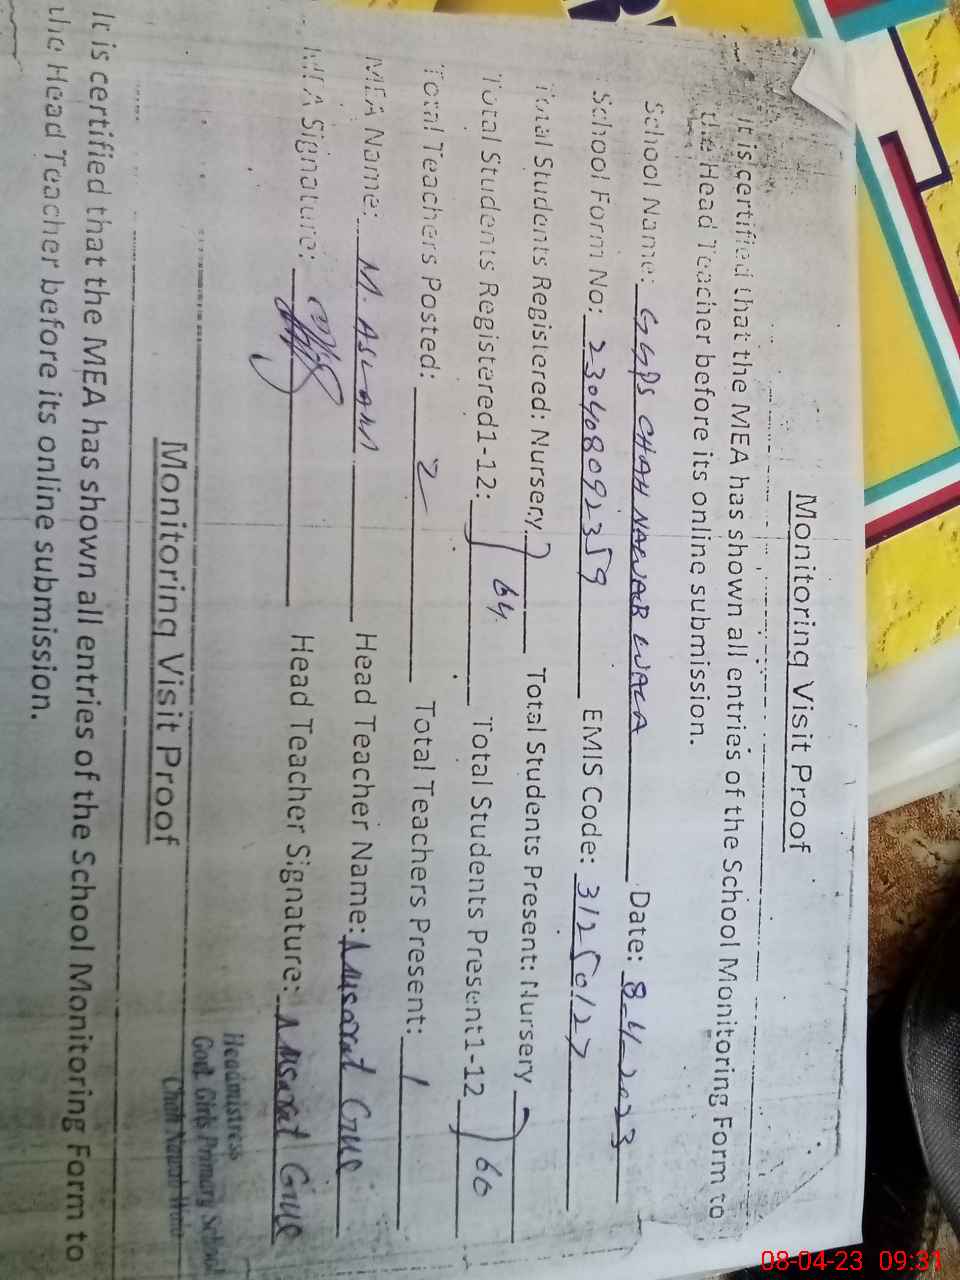 Monitoring Visit Proof
It is certified that the MEA has shown all entries of the School Monitoring Form to
the Head Teacher before its online submission.
School Name: GGPS CHAH NAWAB WALA Date: 8-4-2023
School Form No: 230408092359 EMIS Code: 31250127
Total Students Registered: Nursery Total Students Present: Nursery
Total Students Registered1-12: 64 Total Students Present1-12 60
Total Teachers Posted: 2 Total Teachers Present: 1
MEA Name: M. ASLAM Head Teacher Name: Musarat Gul
MEA Signature: Head Teacher Signature: Musarat Gul
Headmistress
Govt. Girls Primary School
Chah Nawab Wala
Monitoring Visit Proof
It is certified that the MEA has shown all entries of the School Monitoring Form to
the Head Teacher before its online submission.
08-04-23 09:31